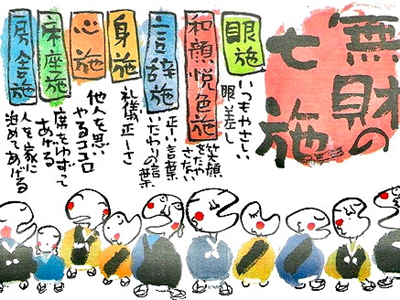 無財の
七施
眼施
いつもやさしい
眼差し
和顔悦色施
笑顔
をたや
さない
言辞施
正しい言葉
いたわりの言葉
身施
礼儀正しさ
心施
他人を思い
やるココロ
床座施
席をゆずって
あげる
房舎施
人を家に
泊めてあげる